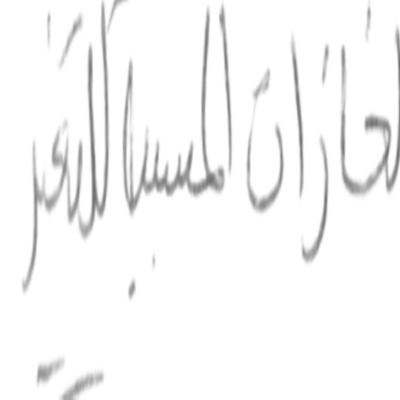 الغازات المسببة للتغير